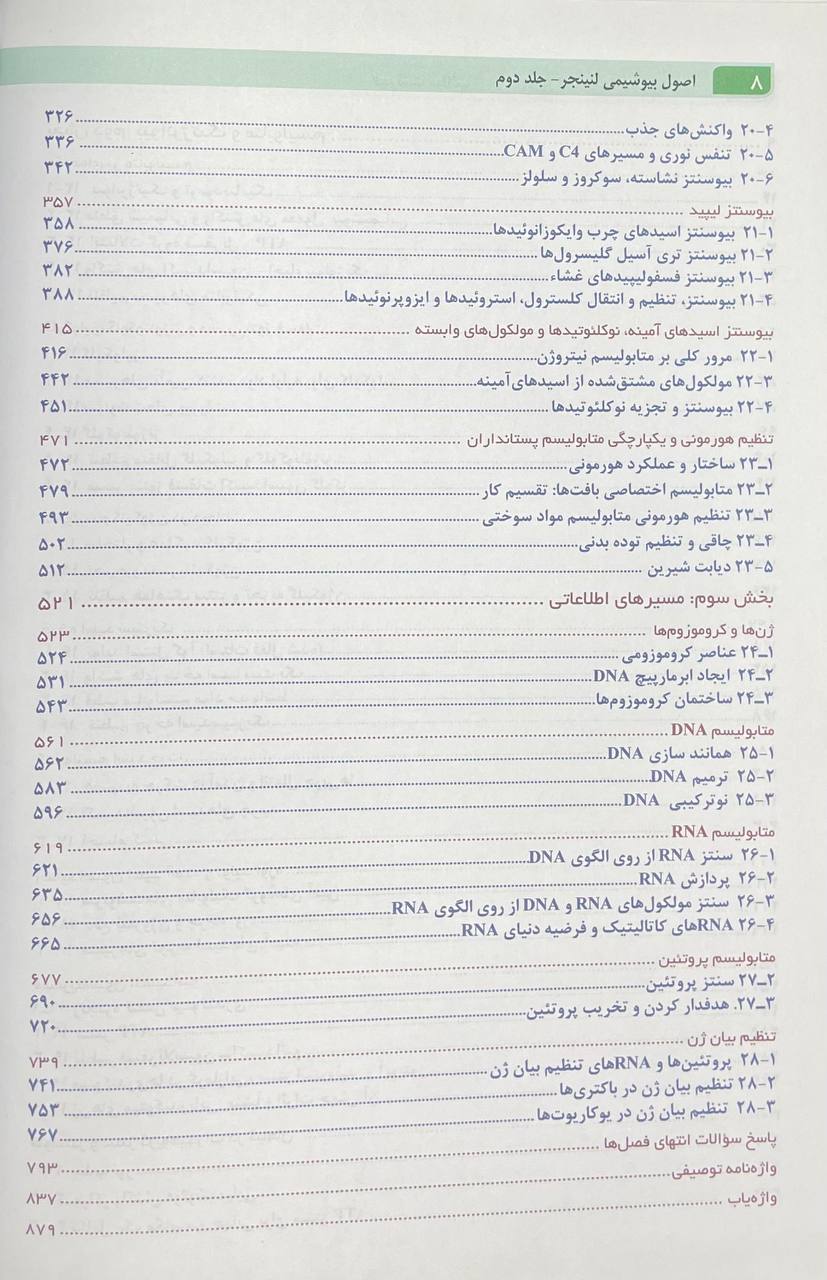 ۸ اصول بیوشیمی لنینجر – جلد دوم
۲۰-۴ واکنش‌های جذب ۳۲۶
۲۰-۵ تنفس نوری و مسیرهای C4 و CAM ۳۳۶
۲۰-۶ بیوسنتز نشاسته، سوکروز و سلولز ۳۴۲
بیوسنتز لیپید ۳۵۷
۲۱-۱ بیوسنتز اسیدهای چرب وایکوزانوئیدها ۳۵۸
۲۱-۲ بیوسنتز تری آسیل گلیسرول‌ها ۳۷۶
۲۱-۳ بیوسنتز فسفولیپیدهای غشاء ۳۸۲
۲۱-۴ بیوسنتز، تنظیم و انتقال کلسترول، استروئیدها و ایزوپرنوئیدها ۳۸۸
بیوسنتز اسیدهای آمینه، نوکلئوتیدها و مولکول‌های وابسته ۴۱۵
۲۲-۱ مرور کلی بر متابولیسم نیتروژن ۴۱۶
۲۲-۳ مولکول‌های مشتق‌شده از اسیدهای‌آمینه ۴۴۲
۲۲-۴ بیوسنتز و تجزیه نوکلئوتیدها ۴۵۱
تنظیم هورمونی و یکپارچگی متابولیسم پستانداران ۴۷۱
۲۳ــ۱ ساختار و عملکرد هورمونی ۴۷۲
۲۳ــ۲ متابولیسم اختصاصی بافت‌ها: تقسیم کار ۴۷۹
۲۳ــ۳ تنظیم هورمونی متابولیسم مواد سوختی ۴۹۳
۲۳ــ۴ چاقی و تنظیم توده بدنی ۵۰۲
۲۳-۵ دیابت شیرین ۵۱۲
بخش سوم: مسیرهای اطلاعاتی ۵۲۱
ژن‌ها و کروموزوم‌ها ۵۲۳
۲۴ــ۱ عناصر کروموزومی ۵۲۴
۲۴ــ۲ ایجاد ابرمارپیچ DNA ۵۳۱
۲۴ــ۳ ساختمان کروموزوم‌ها ۵۴۳
متابولیسم DNA ۵۶۱
۲۵-۱ همانند سازی DNA ۵۶۲
۲۵-۲ ترمیم DNA ۵۸۳
۲۵-۳ نوترکیبی DNA ۵۹۶
متابولیسم RNA ۶۱۹
۲۶-۱ سنتز RNA از روی الگوی DNA ۶۲۱
۲۶-۲ پردازش RNA ۶۳۵
۲۶-۳ سنتز مولکول‌های RNA و DNA از روی الگوی RNA ۶۵۶
۲۶-۴ RNAهای کاتالیتیک و فرضیه دنیای RNA ۶۶۵
متابولیسم پروتئین ۶۷۷
۲۷ــ۲ سنتز پروتئین ۶۹۰
۲۷ــ۳. هدفدار کردن و تخریب پروتئین ۷۲۰
تنظیم بیان ژن ۷۳۹
۲۸-۱ پروتئین‌ها و RNAهای تنظیم بیان ژن ۷۴۱
۲۸-۲ تنظیم بیان ژن در باکتری‌ها ۷۵۳
۲۸-۳ تنظیم بیان ژن در یوکاریوت‌ها ۷۶۷
پاسخ سؤالات انتهای فصل‌ها ۷۹۳
واژه‌نامه توصیفی ۸۳۷
واژه‌یاب ۸۷۹